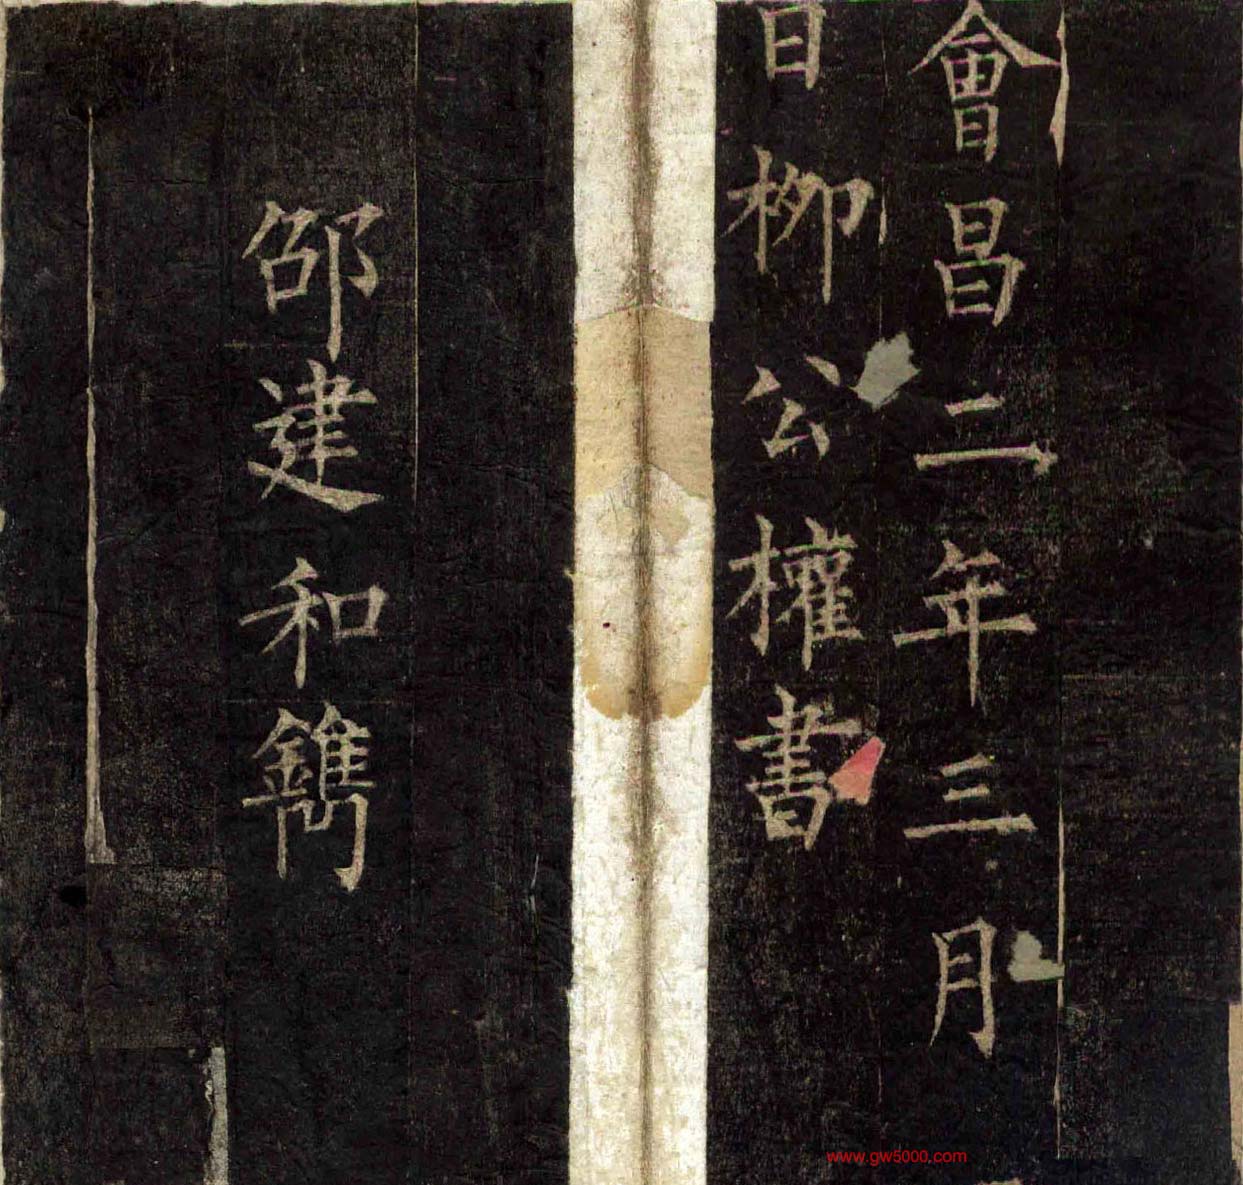 會昌二年三月
日柳公權書
邵建和鐫
www.gw5000.com